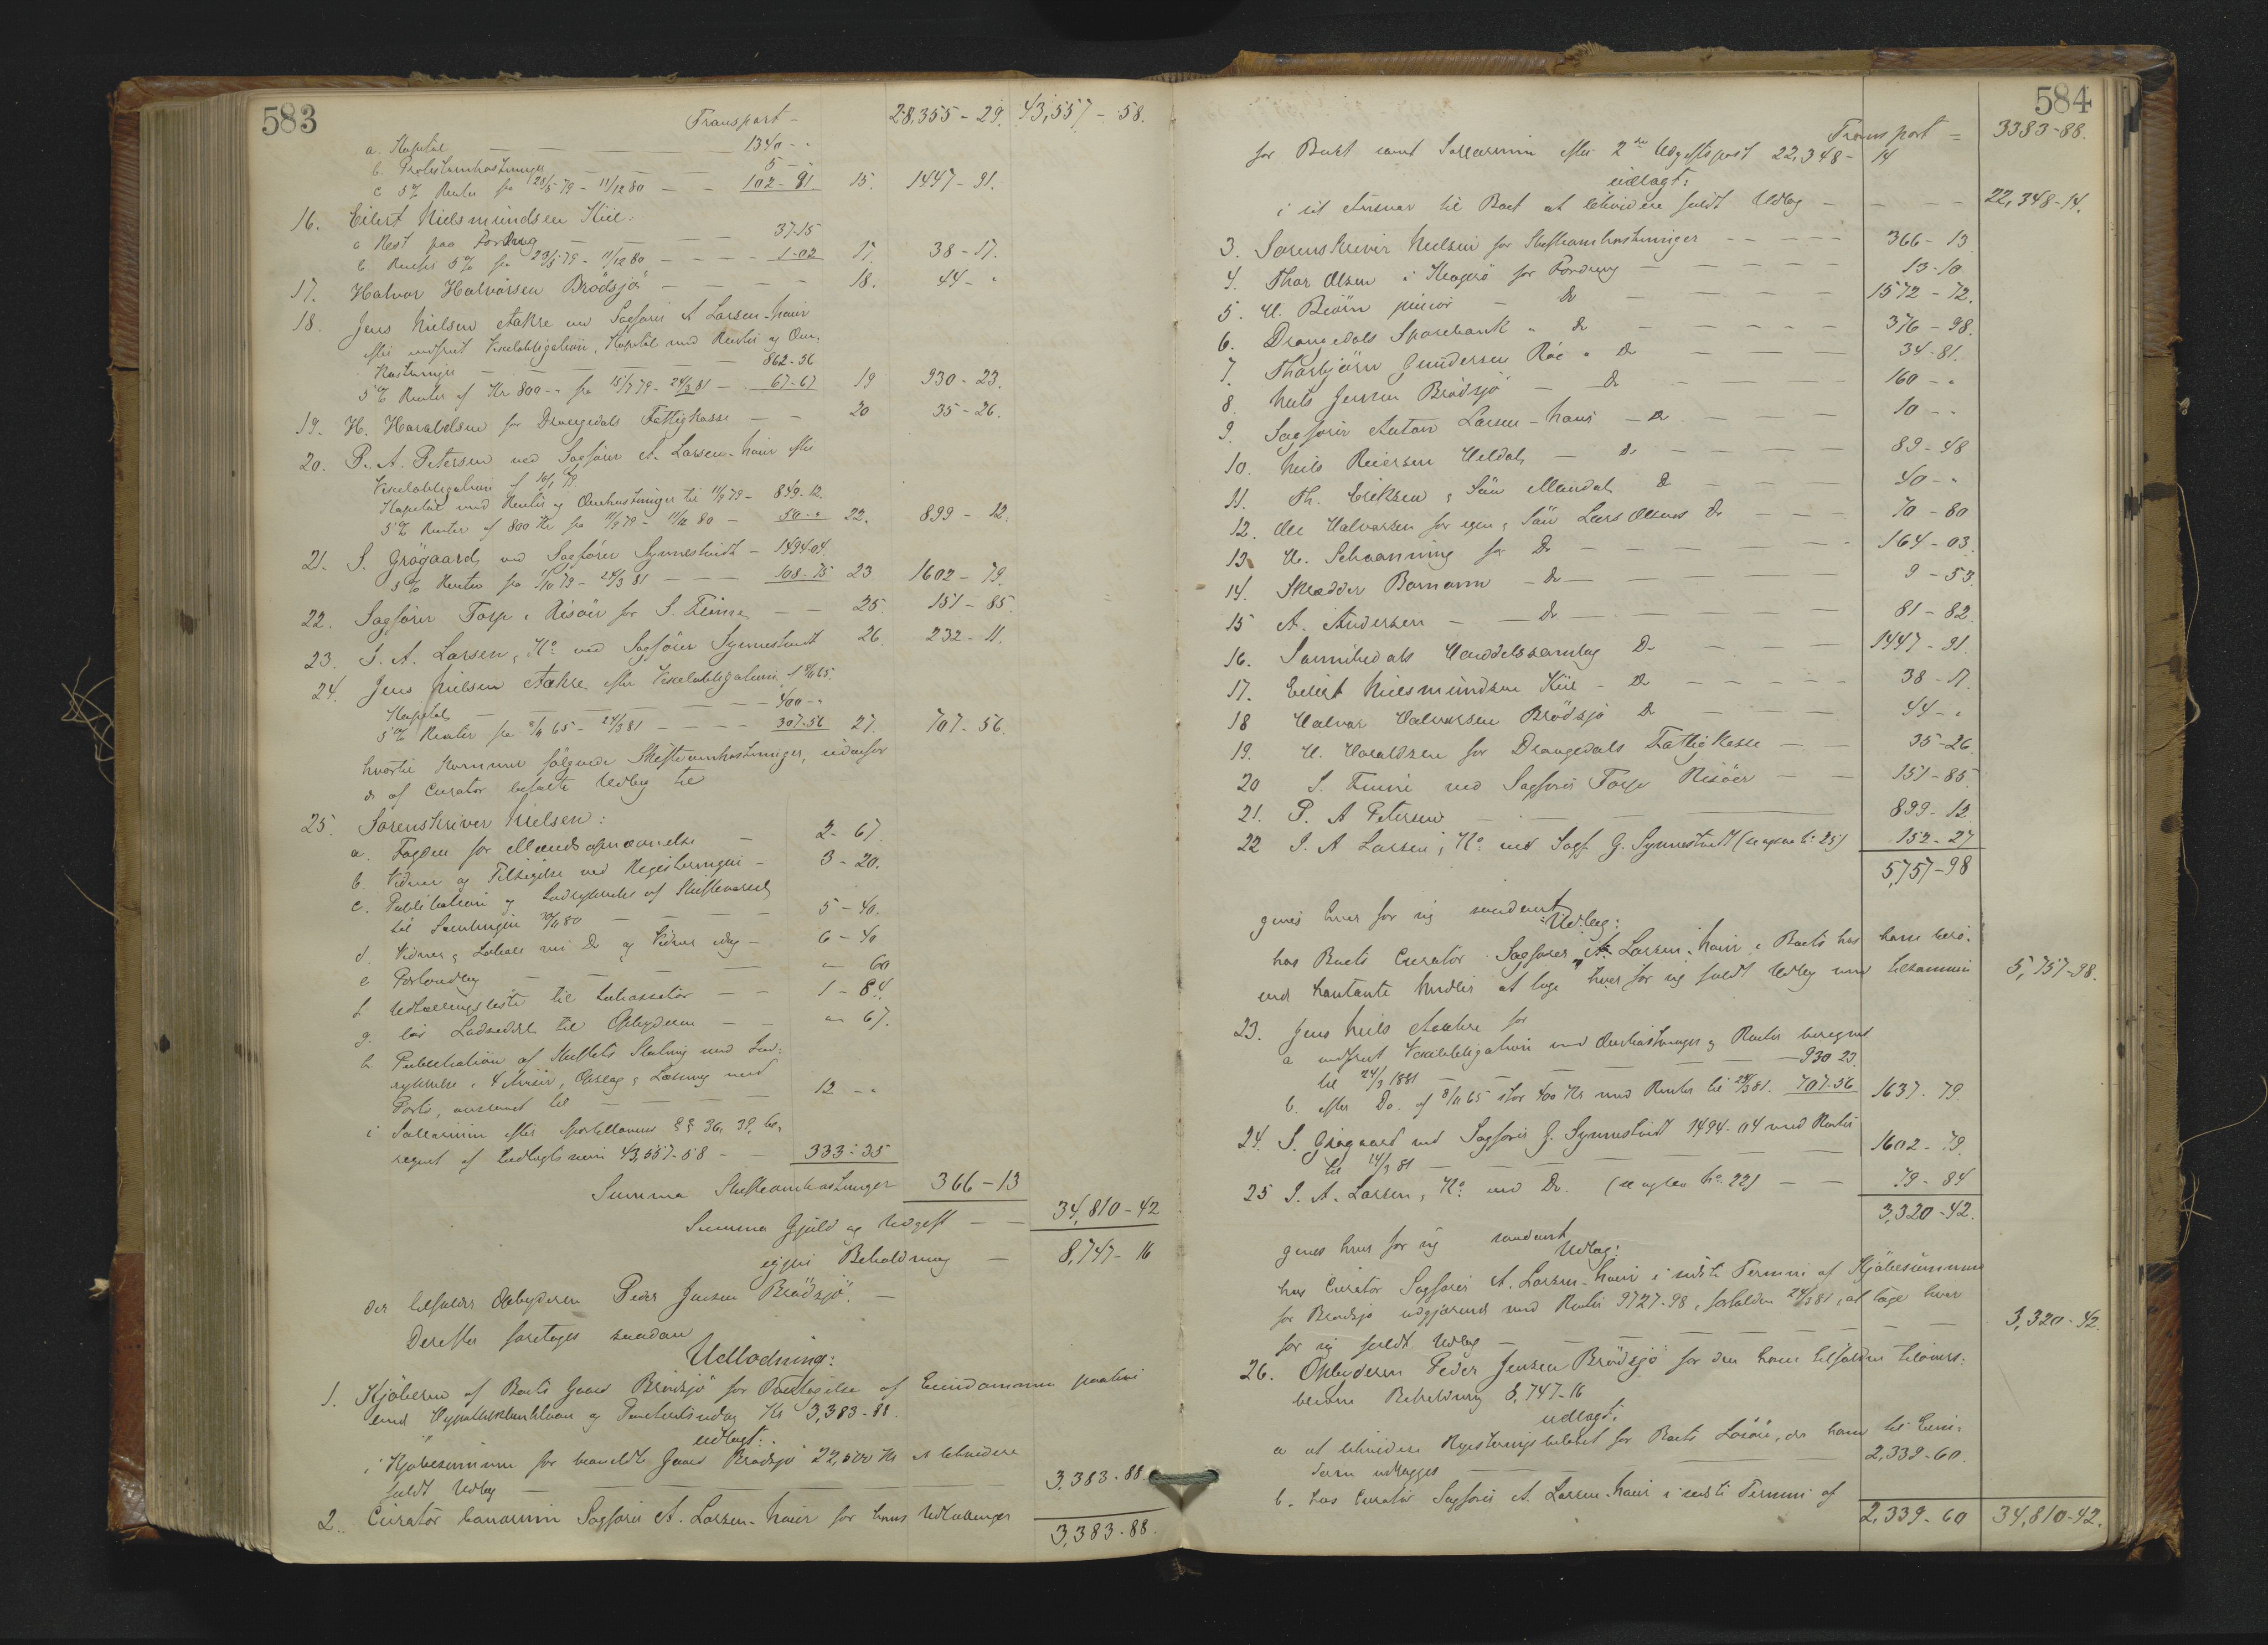 583
Transport - 28,355 - 29. 43,557 - 58.
a. Kapital — — — 1340 - "
b. Protestomkostninger — — 5 - "
c 5% Renter fra 23/5 79 - 11/12 80 — - 102 - 91 15. 1447 - 91.
16. Eilert Nielsmundsen Kiil:
a Rest paa Fordring — — 37-15
b. Renter 5% fra 23/5 79 - 11/12 80 — - - 1-02 17. 38 - 17.
17. Halvor Halvorsen Brödsjö — — — 18. 44 - "
18. Jens Nielsen Aakre ved Sagförer A Larsen-Naur
efter indfriet Vexelobligation, Kapital med Renter og Om-
kostninger — — — 862-56
5% Renter af Kr 800 - - fra 15/7 79 - 24/3 81 — 67-67 19 930 - 23.
19. H. Haraldsen for Drangedals Fattigkasse — - 20 35 - 26.
20. P. A. Petersen ved Sagförer A. Larsen-Naur efter
Vexelobligation af 10/1 79.
Kapital med Renter og Omkostninger til 11/9 79 - 849-12.
5% Renter af 800 Kr fra 11/9 79 - 11/12 80 - 50 - " 22. 899 - 12.
21. S. Grögaard ved Sagförer Synnestvedt - 1494-04
5% Renter fra 1/10 79 - 24/3 81 — - - 108-75 23 1602 - 79.
22. Sagförer Torp i Risöer for S. Finne — - 25. 151 - 85.
23. J. A. Larsen & Ko ved Sagförer Synnestvedt 26 232 - 11.
24. Jens Nielsen Aakre efter Vexelobligation af 8/11 65.
Kapital — — — 400 - -
5% Renter fra 8/11 65 - 24/3 81 — - - 307-56 27. 707 - 56.
hvortil kommer fölgende Skifteomkostninger, udenfor
de af Curator betalte Udlæg til
25. Sorenskriver Nielsen:
a. Fogden for Mandsopnævnelse — 2 - 67
b. Vidner og Tilsigelse ved Registeringen - 3 - 20.
c. Publikation og Indrykkelse af Skiftevarsel
til Samlingen 30/11 80 — - - 5 - 40.
d. Vidner & Lokale ved Do og Vidner idag - 6 - 40
e Portoudlæg — — — " 60
f. Udlodningsliste til Inkassator — - 1 - 84
g. lös Ladseddel til Opbyderen — - " 67.
h Publikation af Skiftets Slutning med Ind-
rykkelse i 4 Aviser, Opslag & Læsning med
Porto, anslaaet til — — — 12 - "
i Sallarium efter Sportelloven §§ 36, 39, be-
regnet af Indtægtssum 43,557-58 - - 333-35
Summa Skifteomkostninger 366 - 13
Summa Gjæld og Udgift — - 34,810 - 42
igjen Beholdning — 8,747 - 16
der tilfalder Opbyderen Peder Jensen Brödsjö. —
Derefter foretages saadan
Udlodning:
1. Kjöberen af Boets Gaard Brödsjö for Overtagelse af Eiendommens paahvi
lende Hypothekbanklaan og Panteheftelser Kr 3,383-88.
udlagt:
i Kjöbesummen for bemeldte Gaard Brödsjö 22,500 Kr at likvidere
fuldt Udlæg — — — 3,383-88
2. Curator bonorum Sagförer A. Larsen-Naur for hans Udtællinger
3,383-88.
584
Transport = 3383-88.
for Boet samt Sallarium efter 2den Udgiftspost 22,348 - 14
udlagt:
i sit Ansvar til Boet at likvidere fuldt Udlæg — - - - 22,348-14.
3. Sorenskriver Nielsen for Skifteomkostninger — - - - 366 - 13
4. Thor Olsen i Kragerö for Fordring — — — 13-10
5. H. Biörn junior — Do — — — 1572 - 72.
6. Drangedals Sparebank " Do — — — 376 - 98.
7. Thorbjörn Gundersen Röe " Do — — — 34-81.
8. Niels Jensen Brödsjö — Do — — — 160 - "
9. Sagförer Anton Larsen-Naur - Do — — — 10 - -
10. Niels Reiersen Heldal — Do — — — 89 - 48
11. Th. Eriksen & Sön Mandal Do — — — 40 - "
12. Ole Halvorsen for egen & Sön Lars Olsens Do — - - 70 - 80
13 H. Schaanning for Do — — — 164 - 03.
14. Skrædder Bomann - Do — — — 9 - 53.
15 A. Andersen — Do — — — 81 - 82
16. Sannikedals Handelssamlag Do — — — 1447 - 91.
17. Eilert Nielsmundsen Kiil - Do — — — 38 - 17.
18 Halvor Halvorsen Brödsjö Do — — — 44 - "
19. H. Haraldsen for Drangedals Fattigkasse — — 35-26
20 S. Finne ved Sagförer Torp Risöer — — 151-85
21. P. A Petersen — — — 899-12
22 J. A Larsen & Ko ved Sagf. G. Synnestvedt (se ogsaa No 25) 152-27
5,757-98
gives hver for sig saadant
Udlæg:
hos Boets Curator Sagförer A. Larsen-Naur i Boets hos ham bero-
ende kontante Midler at tage hver for sig fuldt Udlæg med tilsammen 5,757-98.
23. Jens Niels Aakre for
a indfriet Vexelobligation med Omkostninger & Renter beregnet
til 24/3 1881 — — — 930 23
b. efter Do. af 8/11 65 stor 400 Kr med Renter til 24/3 81. 707-56 1637. 79.
24. S. Grögaard ved Sagförer G. Synnestvedt 1494-04 med Renter
til 24/3 81 — — — 1602 - 79.
25 J. A. Larsen & Ko ved Do. (se ogsaa No 22) — - 79 - 84
3,320-42.
gives hver for sig saadant
Udlæg:
hos Curator Sagförer A. Larsen-Naur i sidste Termin af Kjöbesummen
for Brödsjö udgjörende med Renter 9727-98, forfalden 24/3 81, at tage hver
for sig fuldt Udlæg — — — 3,320-42.
26. Opbyderen Peder Jensen Brödsjö for den ham tilfaldne tilovers-
blevne Beholdning 8,747-16
udlagt:
a at likvidere Registeringsbelöbet for Boets Lösöre, der ham til Eien-
dom udlægges — — — 2,339-60.
b. hos Curator Sagförer A. Larsen-Naur i sidste Termin af
2,339-60 34,810-42.